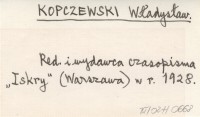 KOPCZEWSKI Władysław.
Red. i wydawca czasopisma
„Iskry" (Warszawa) w r. 1928.